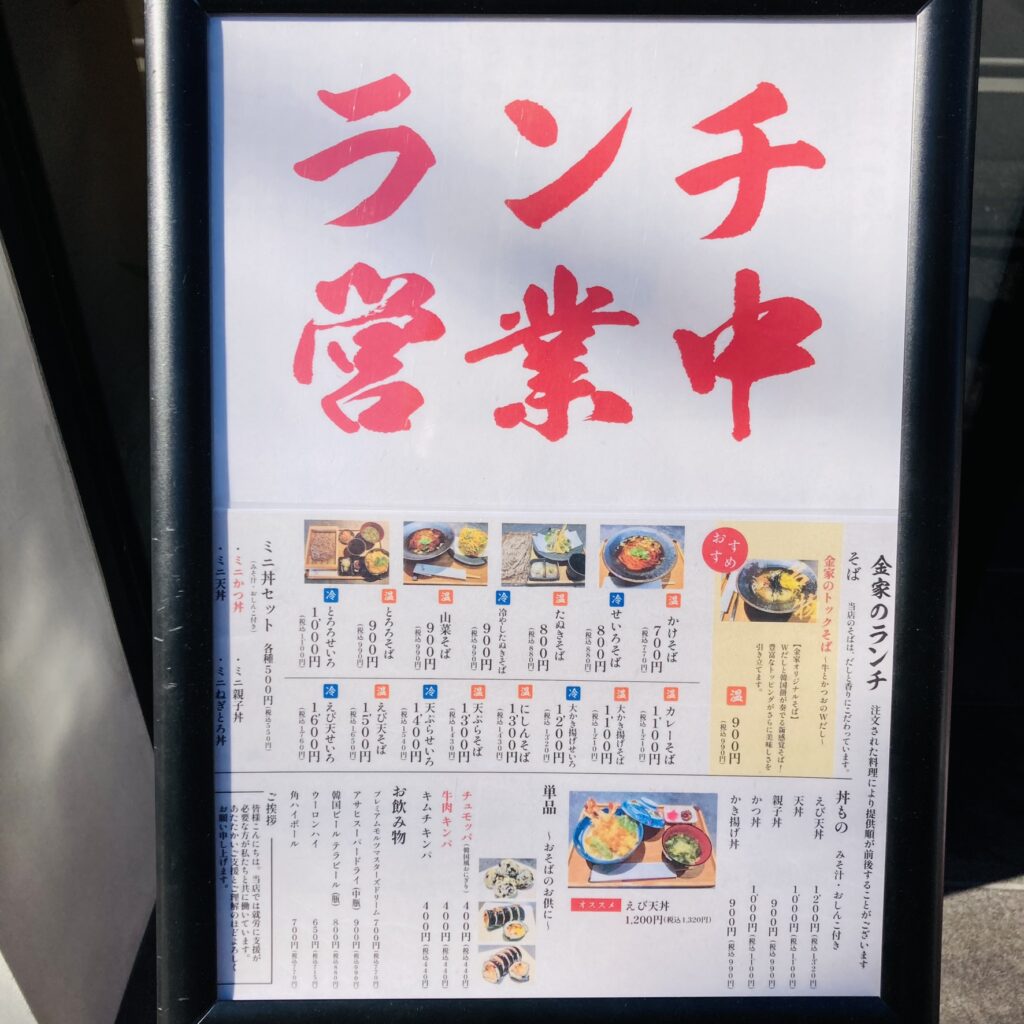 ランチ
営業中
金家のランチ
注文された料理により提供順が前後することがございます
そば
当店のそばは、だしと香りにこだわっています。
おすすめ
金家のトックそば
~牛とかつおのWだし~
【金家オリジナルそば】
Wだしと韓国餅が奏でる新感覚そば!
豊富なトッピングがさらに美味しさを
引き立てます。
温
900円
(税込990円)
温
かけそば
700円
(税込770円)
冷
せいろそば
800円
(税込880円)
温
たぬきそば
800円
(税込880円)
冷
冷やしたぬきそば
900円
(税込990円)
温
山菜そば
900円
(税込990円)
温
とろろそば
900円
(税込990円)
冷
とろろせいろ
1,000円
(税込1,100円)
温
カレーそば
1,100円
(税込1,210円)
温
大かき揚げそば
1,100円
(税込1,210円)
冷
大かき揚げせいろ
1,200円
(税込1,320円)
温
にしんそば
1,300円
(税込1,430円)
温
天ぷらそば
1,300円
(税込1,430円)
冷
天ぷらせいろ
1,400円
(税込1,540円)
温
えび天そば
1,500円
(税込1,650円)
冷
えび天せいろ
1,600円
(税込1,760円)
ミニ丼セット 各種500円(税込550円)
(みそ汁・おしんこ付き)
・ミニかつ丼 ・ミニ親子丼
・ミニ天丼 ・ミニねぎとろ丼
丼もの みそ汁・おしんこ付き
えび天丼 1,200円(税込1,320円)
天丼 1,000円(税込1,100円)
親子丼 900円(税込990円)
かつ丼 1,000円(税込1,100円)
かき揚げ丼 900円(税込990円)
オススメ えび天丼
1,200円(税込1,320円)
単品 ~おそばのお供に~
チュモッパ(韓国風おにぎり) 400円(税込440円)
牛肉キンパ 400円(税込440円)
キムチキンパ 400円(税込440円)
お飲み物
プレミアムモルツマスターズドリーム 700円(税込770円)
アサヒスーパードライ(中瓶) 900円(税込990円)
韓国ビール テラビール(瓶) 800円(税込880円)
ウーロンハイ 650円(税込715円)
角ハイボール 700円(税込770円)
ご挨拶
皆様こんにちは。当店では就労に支援が
必要な方が私たちと共に働いています。
あたたかいご支援とご理解のほどよろしく
お願い申し上げます。